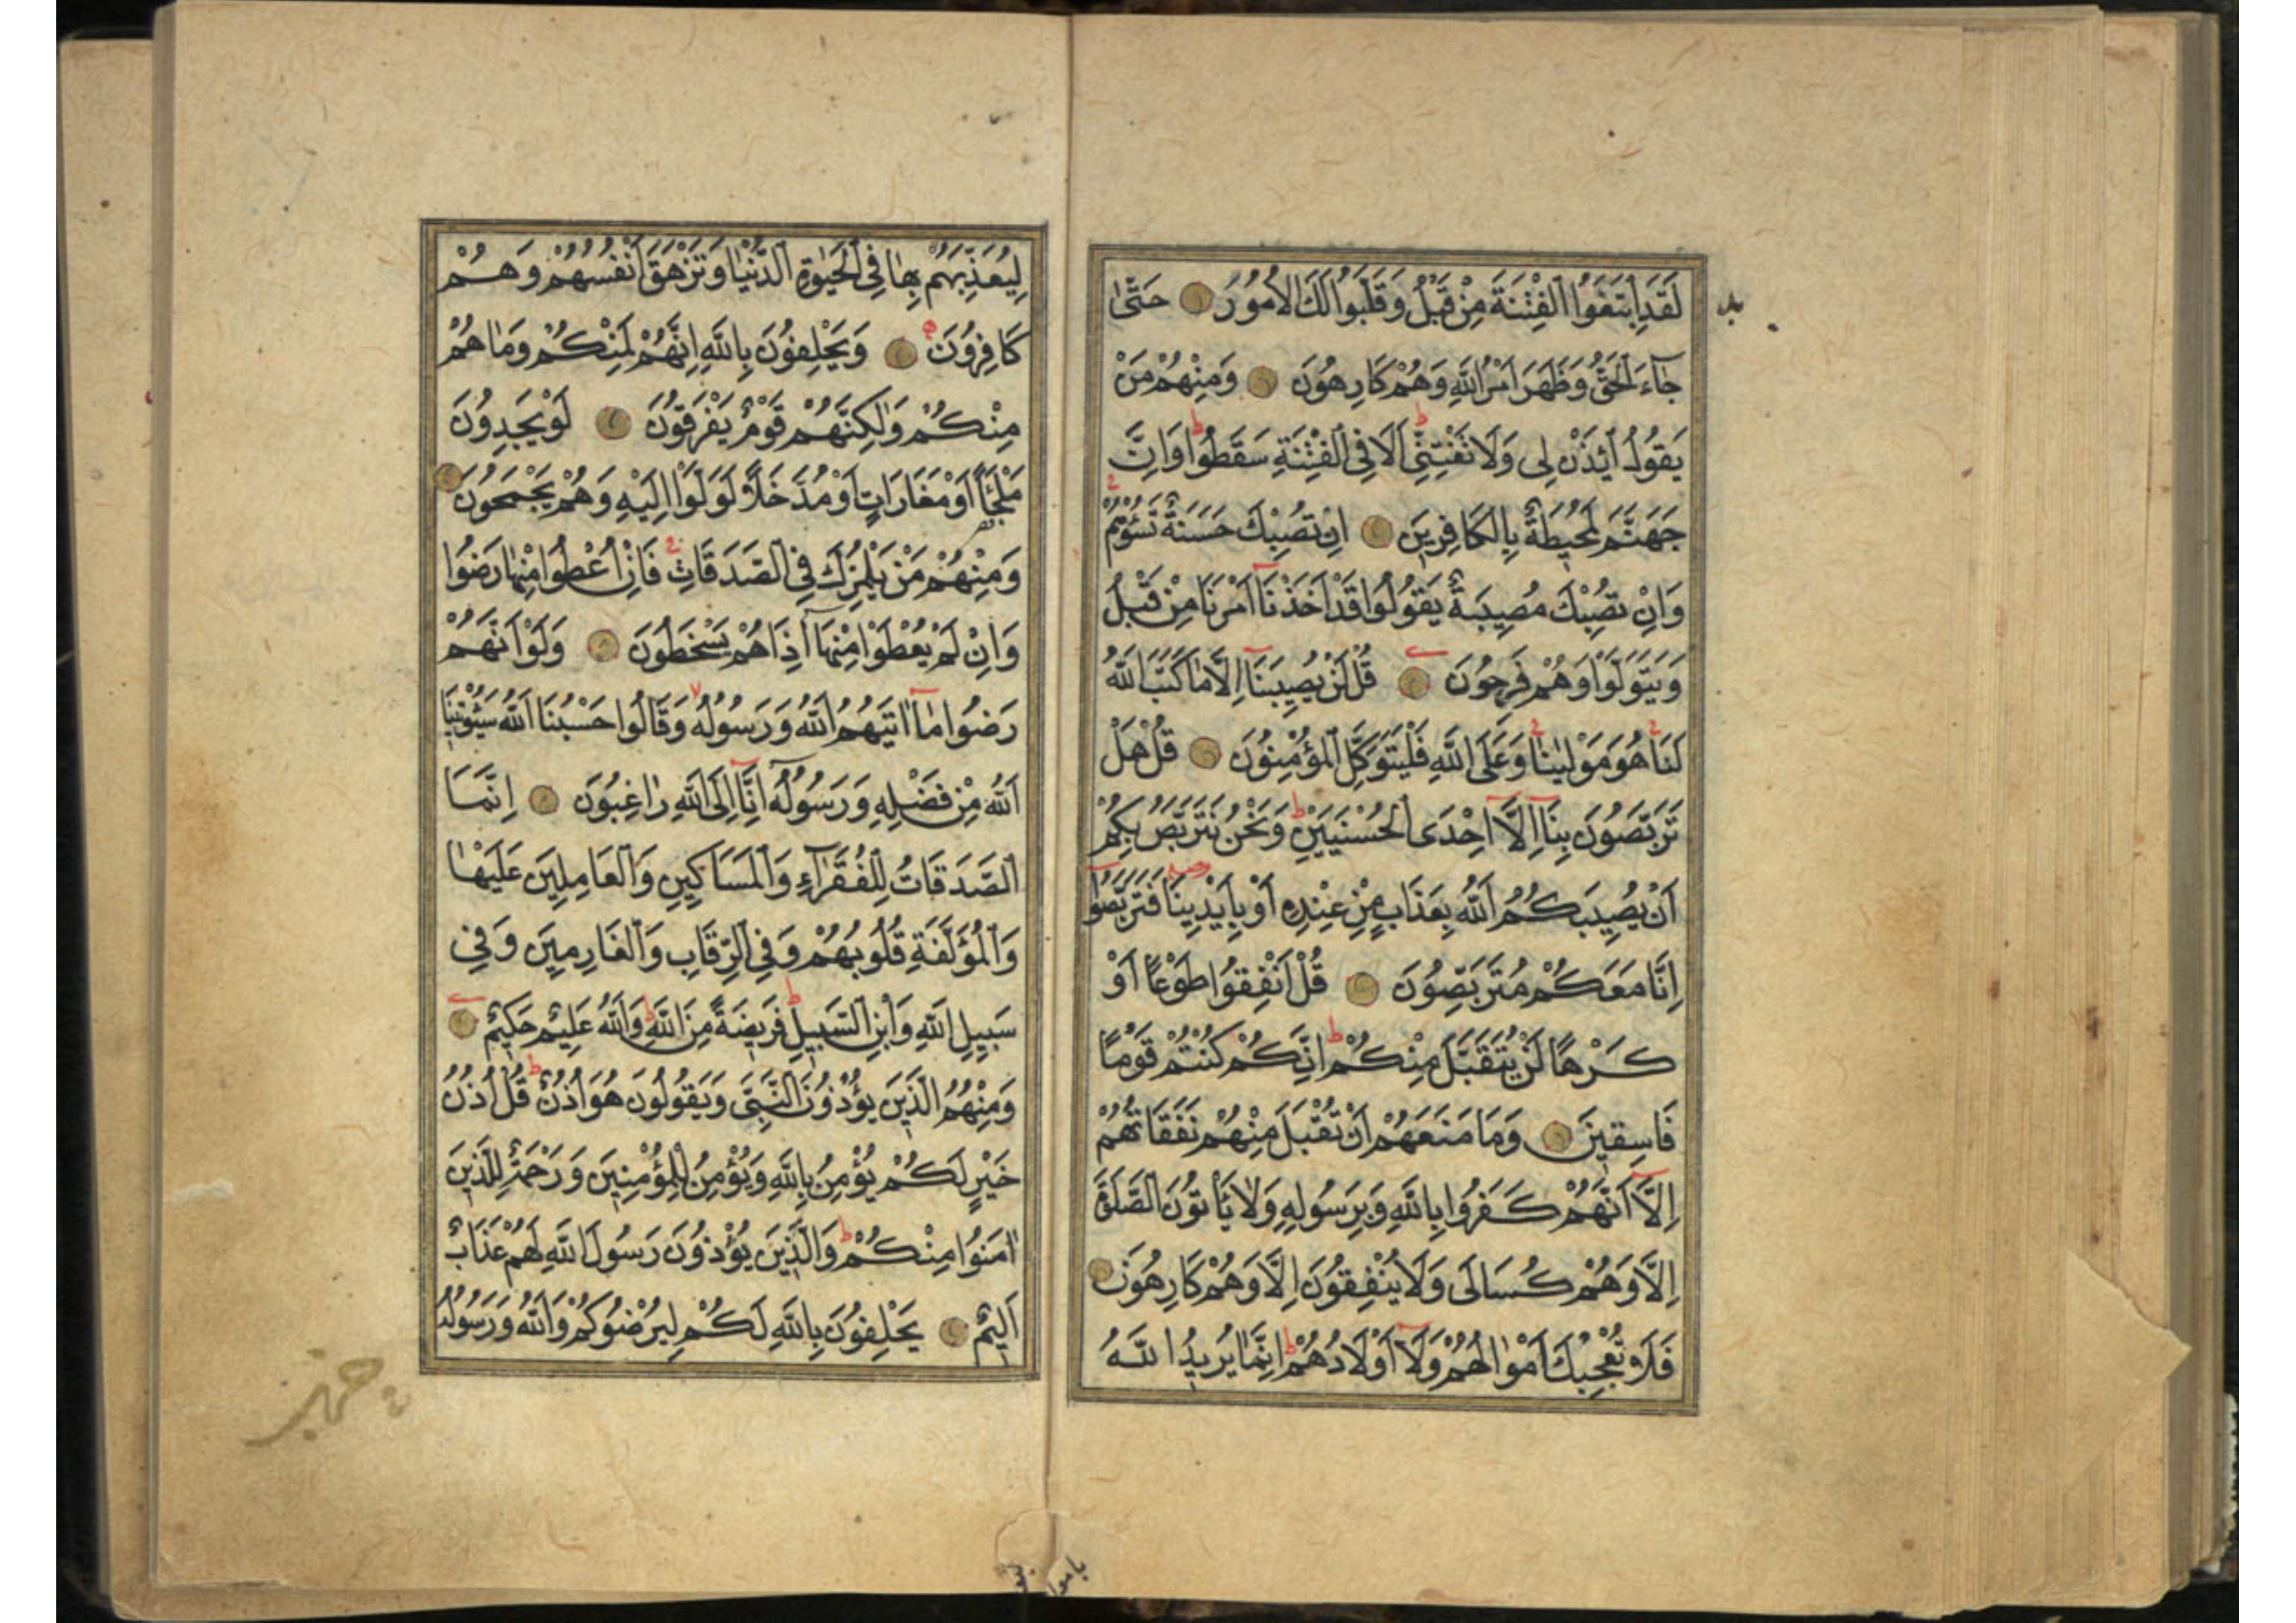 لَقَدِ ابْتَغَوُا الْفِتْنَةَ مِنْ قَبْلُ وَقَلَّبُوا لَكَ الْاُمُورَ حَتّٰى
جَٓاءَ الْحَقُّ وَظَهَرَ اَمْرُ اللّٰهِ وَهُمْ كَارِهُونَ وَمِنْهُمْ مَنْ
يَقُولُ ائْذَنْ لِى وَلَا تَفْتِنِّى اَلَا فِى الْفِتْنَةِ سَقَطُوا وَاِنَّ
جَهَنَّمَ لَمُحِيطَةٌ بِالْكَافِرِينَ اِنْ تُصِبْكَ حَسَنَةٌ تَسُؤْهُمْ
وَاِنْ تُصِبْكَ مُصِيبَةٌ يَقُولُوا قَدْ اَخَذْنَٓا اَمْرَنَا مِنْ قَبْلُ
وَيَتَوَلَّوْا وَهُمْ فَرِحُونَ قُلْ لَنْ يُصِيبَنَٓا اِلَّا مَا كَتَبَ اللّٰهُ
لَنَا هُوَ مَوْلٰينَا وَعَلَى اللّٰهِ فَلْيَتَوَكَّلِ الْمُؤْمِنُونَ قُلْ هَلْ
تَرَبَّصُونَ بِنَٓا اِلَّٓا اِحْدَى الْحُسْنَيَيْنِ وَنَحْنُ نَتَرَبَّصُ بِكُمْ
اَنْ يُصِيبَكُمُ اللّٰهُ بِعَذَابٍ مِنْ عِنْدِهِ اَوْ بِاَيْدِينَا فَتَرَبَّصُٓوا
اِنَّا مَعَكُمْ مُتَرَبِّصُونَ قُلْ اَنْفِقُوا طَوْعًا اَوْ
كَرْهًا لَنْ يُتَقَبَّلَ مِنْكُمْ اِنَّكُمْ كُنْتُمْ قَوْمًا
فَاسِقِينَ وَمَا مَنَعَهُمْ اَنْ تُقْبَلَ مِنْهُمْ نَفَقَاتُهُمْ
اِلَّٓا اَنَّهُمْ كَفَرُوا بِاللّٰهِ وَبِرَسُولِهِ وَلَا يَاْتُونَ الصَّلٰوةَ
اِلَّا وَهُمْ كُسَالَى وَلَا يُنْفِقُونَ اِلَّا وَهُمْ كَارِهُونَ
فَلَا تُعْجِبْكَ اَمْوَالُهُمْ وَلَٓا اَوْلَادُهُمْ اِنَّمَا يُرِيدُ اللّٰهُ
لِيُعَذِّبَهُمْ بِهَا فِى الْحَيٰوةِ الدُّنْيَا وَتَزْهَقَ اَنْفُسُهُمْ وَهُمْ
كَافِرُونَ وَيَحْلِفُونَ بِاللّٰهِ اِنَّهُمْ لَمِنْكُمْ وَمَا هُمْ
مِنْكُمْ وَلٰكِنَّهُمْ قَوْمٌ يَفْرَقُونَ لَوْ يَجِدُونَ
مَلْجَـًٔا اَوْ مَغَارَاتٍ اَوْ مُدَّخَلًا لَوَلَّوْا اِلَيْهِ وَهُمْ يَجْمَحُونَ
وَمِنْهُمْ مَنْ يَلْمِزُكَ فِى الصَّدَقَاتِ فَاِنْ اُعْطُوا مِنْهَا رَضُوا
وَاِنْ لَمْ يُعْطَوْا مِنْهَٓا اِذَا هُمْ يَسْخَطُونَ وَلَوْ اَنَّهُمْ
رَضُوا مَٓا اٰتٰيهُمُ اللّٰهُ وَرَسُولُهُ وَقَالُوا حَسْبُنَا اللّٰهُ سَيُؤْتِينَا
اللّٰهُ مِنْ فَضْلِهِ وَرَسُولُهُٓ اِنَّٓا اِلَى اللّٰهِ رَاغِبُونَ اِنَّمَا
الصَّدَقَاتُ لِلْفُقَرَٓاءِ وَالْمَسَاكِينِ وَالْعَامِلِينَ عَلَيْهَا
وَالْمُؤَلَّفَةِ قُلُوبُهُمْ وَفِى الرِّقَابِ وَالْغَارِمِينَ وَفِى
سَبِيلِ اللّٰهِ وَابْنِ السَّبِيلِ فَرِيضَةً مِنَ اللّٰهِ وَاللّٰهُ عَلِيمٌ حَكِيمٌ
وَمِنْهُمُ الَّذِينَ يُؤْذُونَ النَّبِىَّ وَيَقُولُونَ هُوَ اُذُنٌ قُلْ اُذُنُ
خَيْرٍ لَكُمْ يُؤْمِنُ بِاللّٰهِ وَيُؤْمِنُ لِلْمُؤْمِنِينَ وَرَحْمَةٌ لِلَّذِينَ
اٰمَنُوا مِنْكُمْ وَالَّذِينَ يُؤْذُونَ رَسُولَ اللّٰهِ لَهُمْ عَذَابٌ
اَلِيمٌ يَحْلِفُونَ بِاللّٰهِ لَكُمْ لِيُرْضُوكُمْ وَاللّٰهُ وَرَسُولُهُ